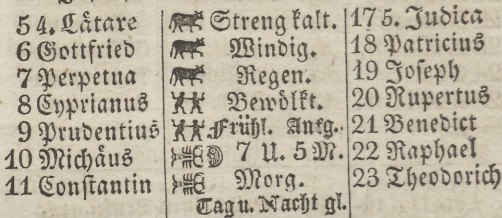 5 4. Lätare Streng kalt. 17 5. Judica
6 Gottfried Windig. 18 Patricius
7 Perpetua Regen. 19 Joseph
8 Cyprianus Bewölkt. 20 Rupertus
9 Prudentius Frühl. Anfg. 21 Benedict
10 Michäus 7 U. 5 M. 22 Raphael
11 Constantin Morg. 23 Theodorich
Tag u. Nacht gl.